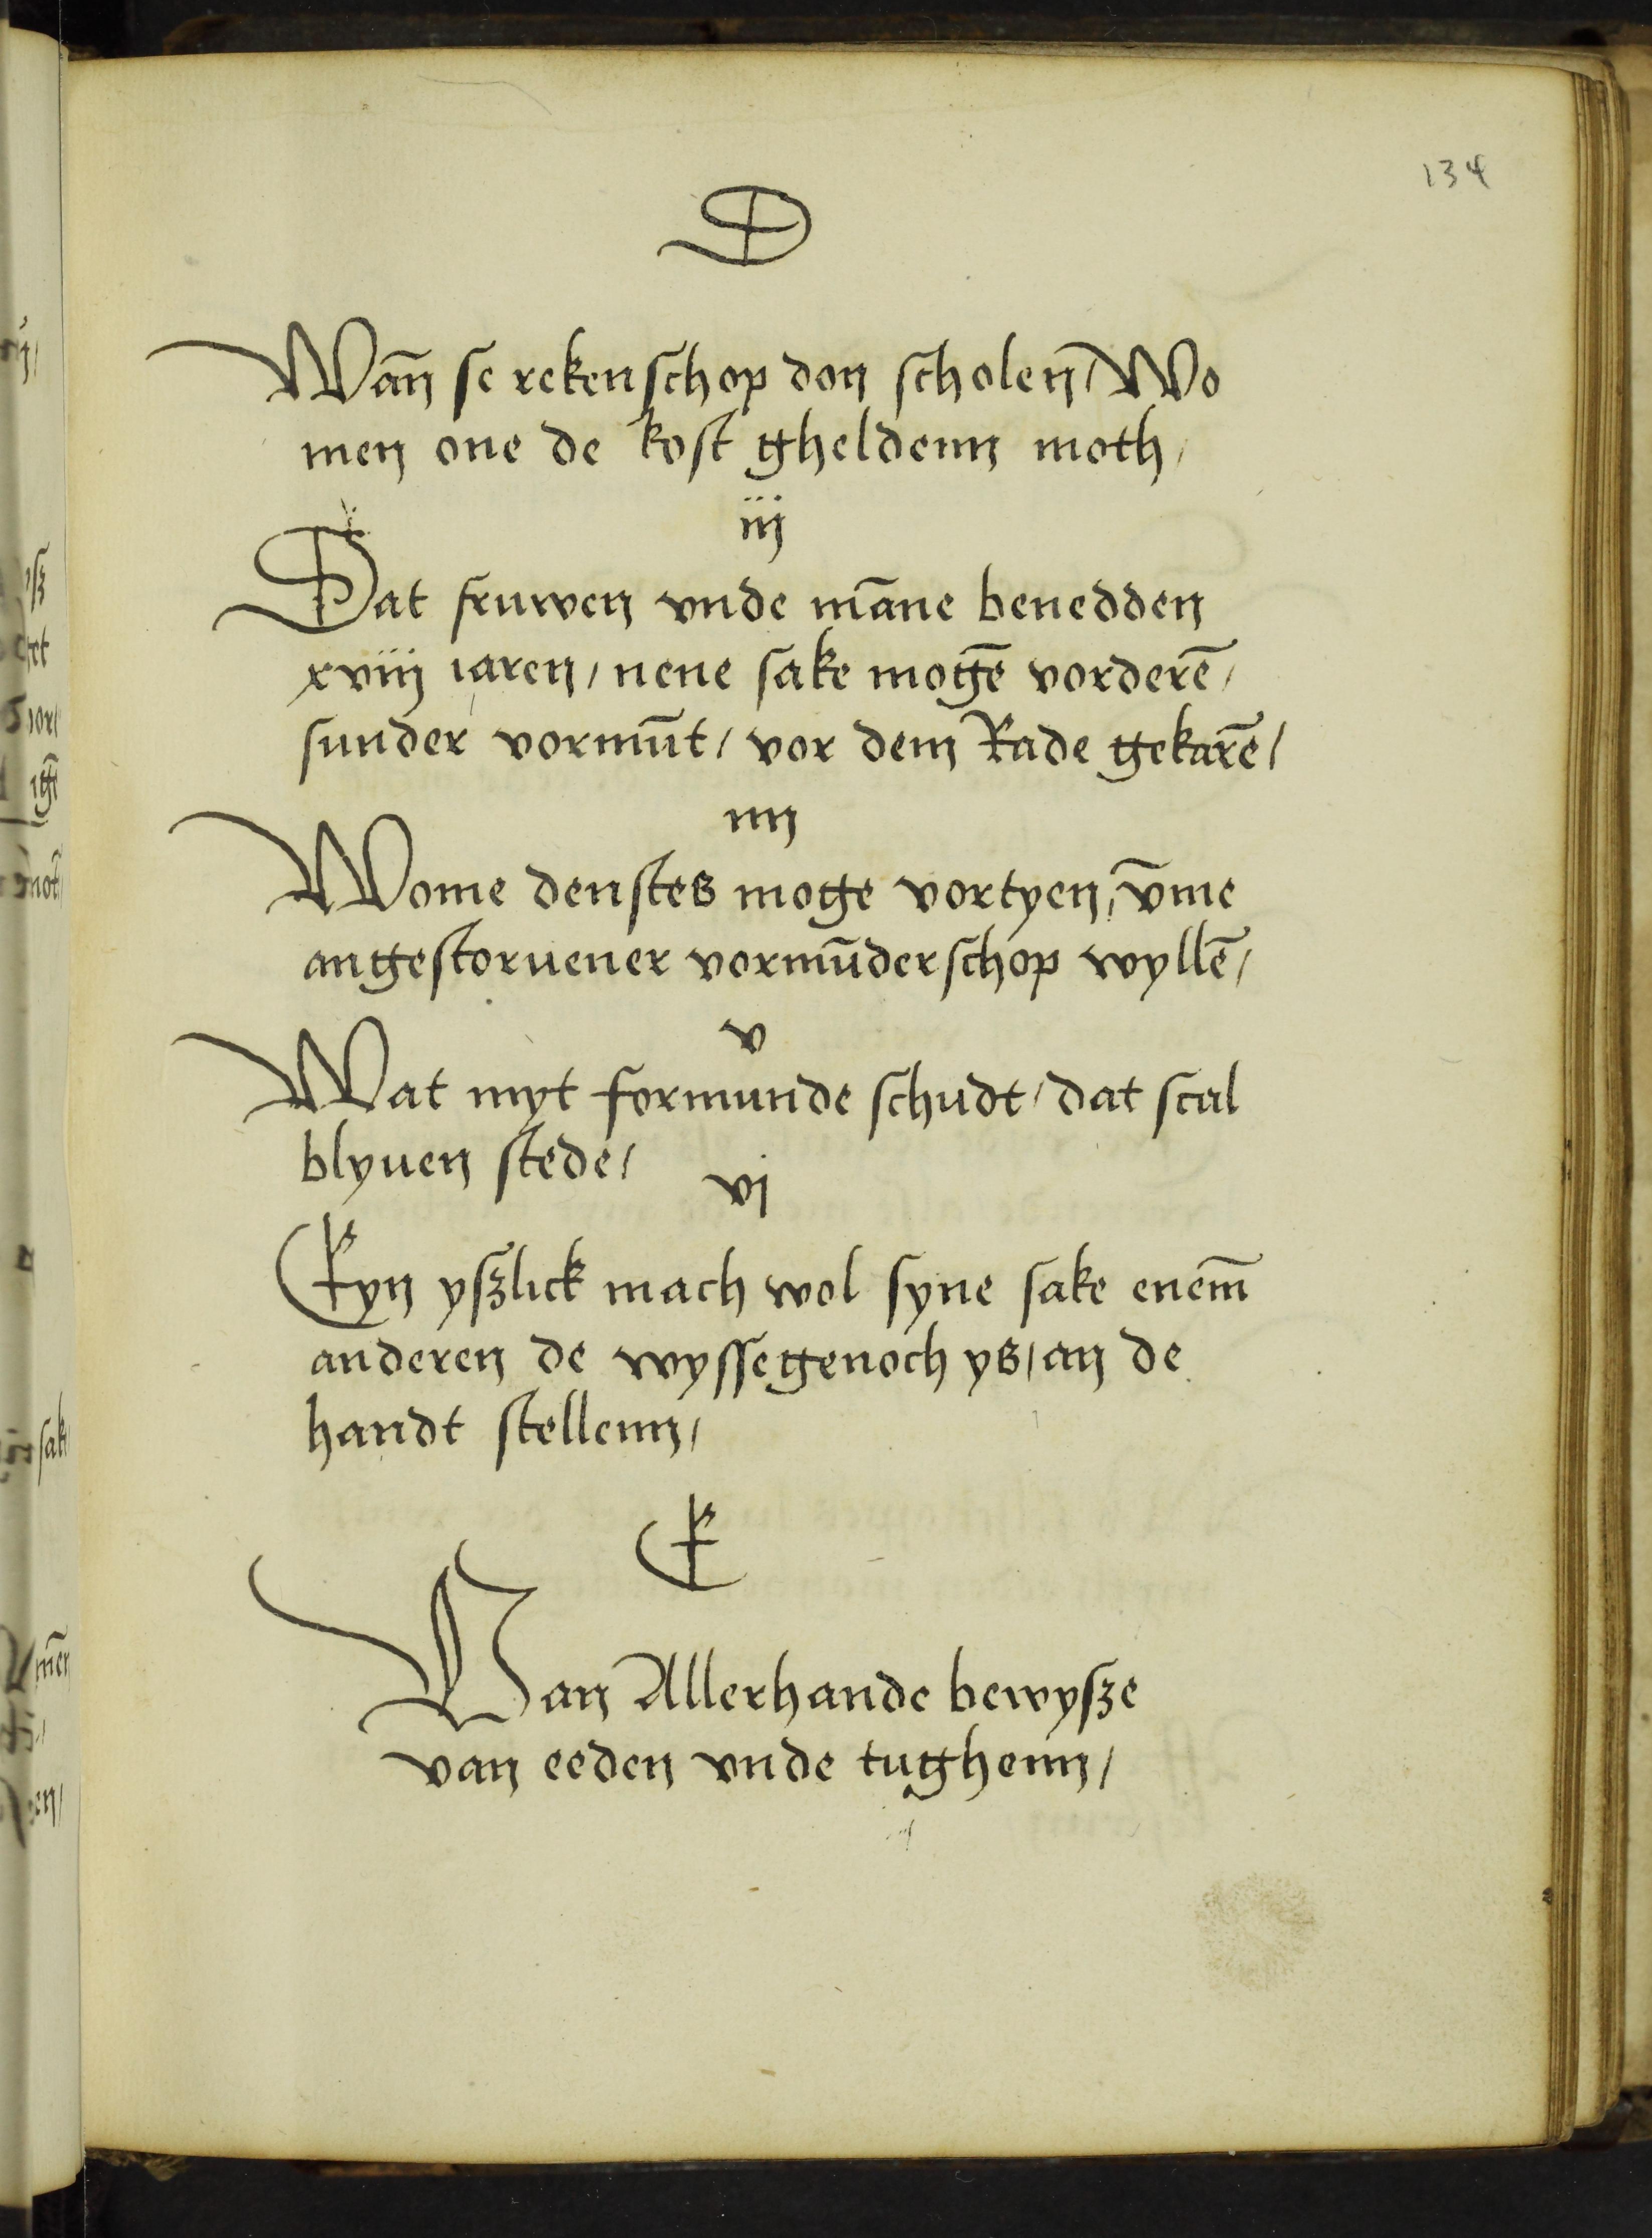 134
D
Wan̄ se rekenschop don scholen / Wo
men one de kost gheldenn moth /
iij
Dat fruwen vnde mān̄e benedden
xviij iaren / nene sake mogē vorderē /
sunder vormūt / vor dem Rade gekarē /
iiij
Wome denstes moge vortyen / v̄me
angestoruener vormūderschop wyllē /
v
Wat myt formunde schudt / dat scal
blyuen stede /
vj
Eyn yszlick mach wol syne sake enem̄
anderen de wyssegenoch ys / an de
handt stellenn /
E
Van Allerhande bewysze
van eeden vnde tughenn /